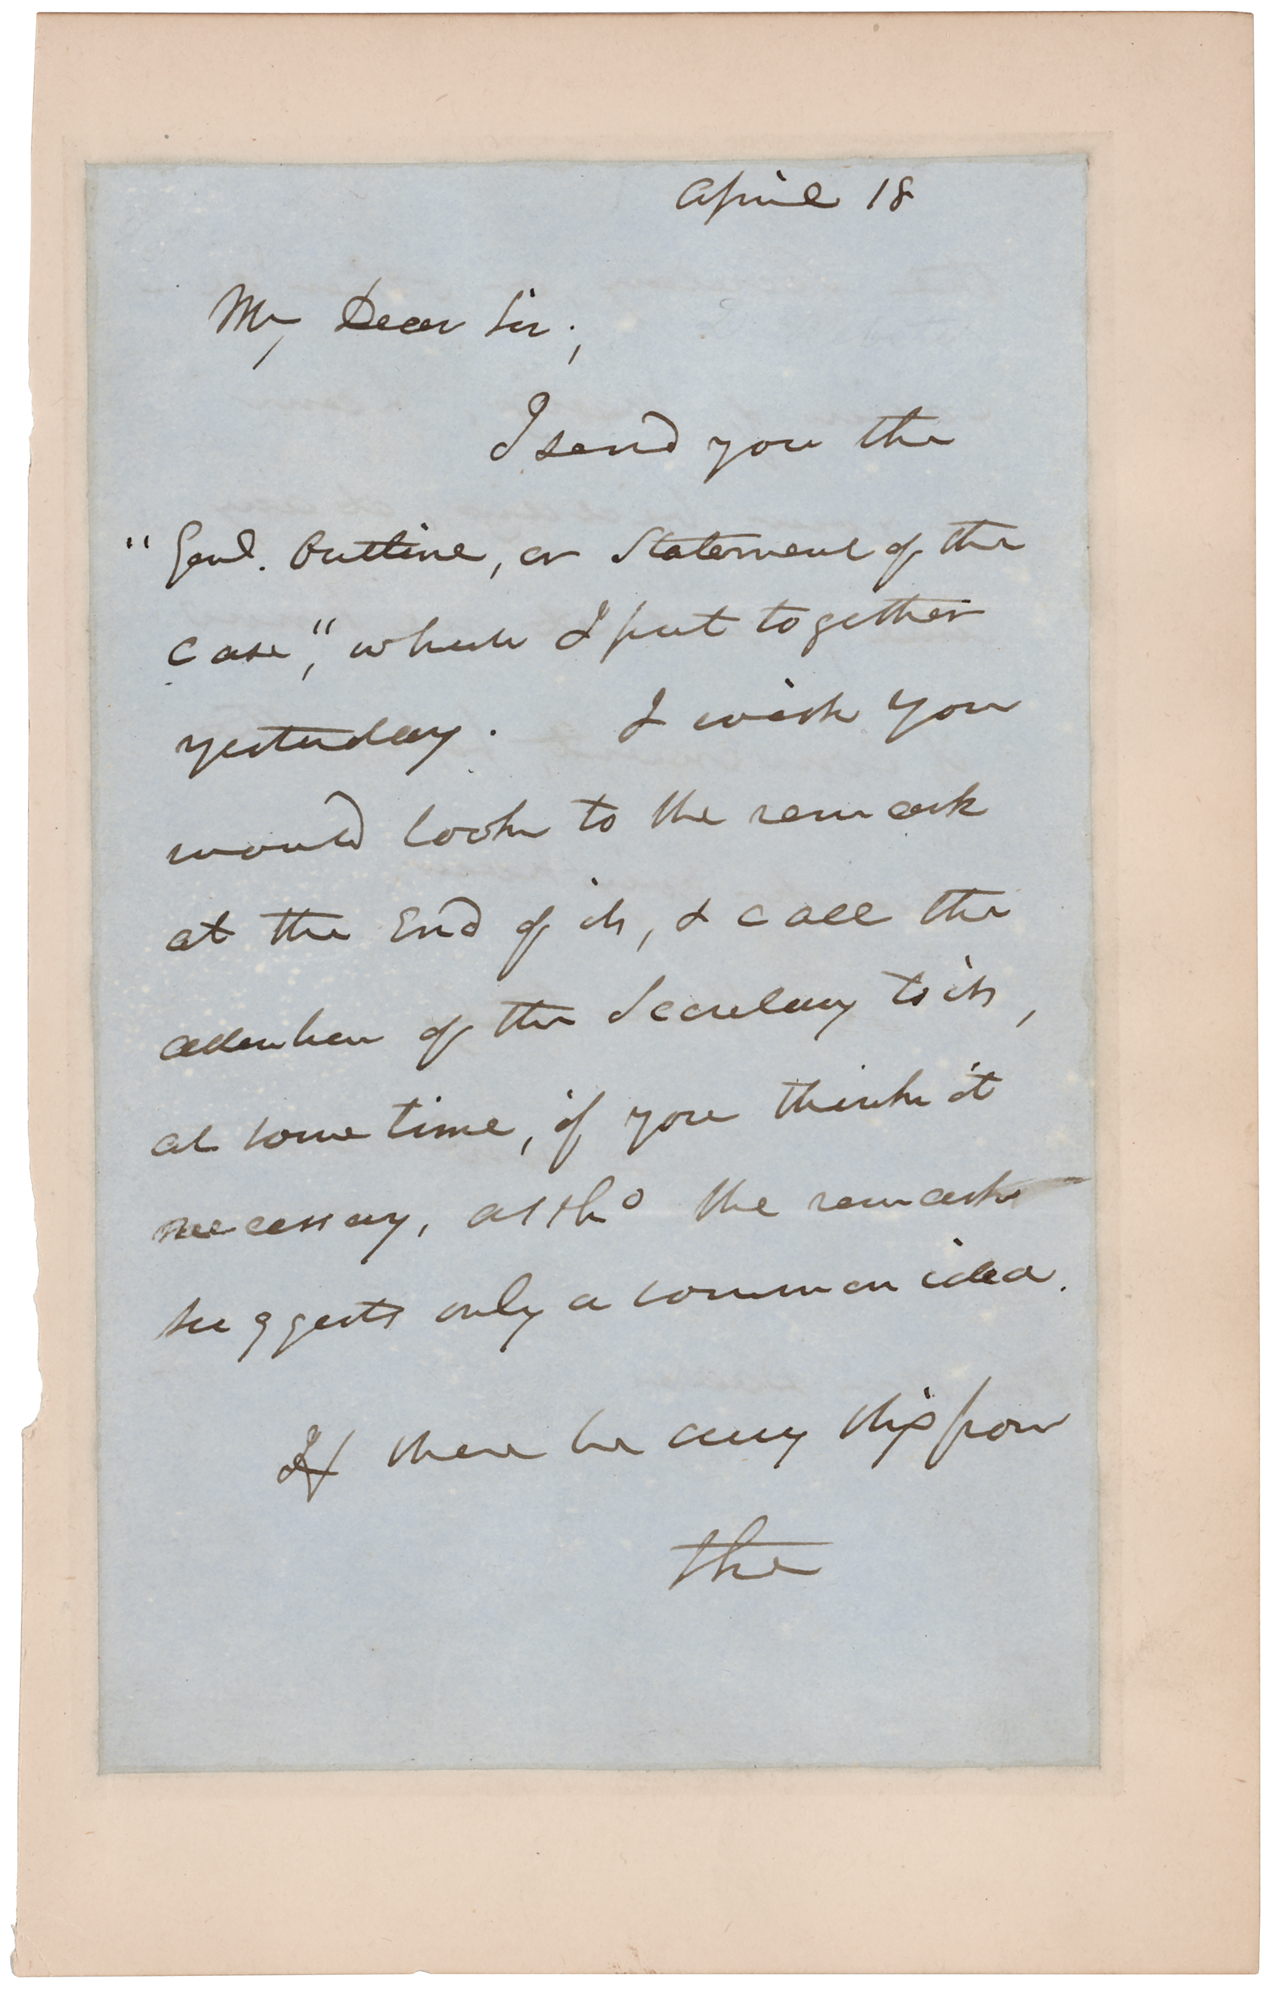 April 18
My Dear Sir;
I send you the
"Genl. Outline, or Statement of the
case", which I put together
yesterday. I wish you
would look to the remark
at the End of it, & call the
attention of the Secretary to it,
at some time, if you think it
necessary, altho the remark
suggests only a common idea.
If there be any thing from
the